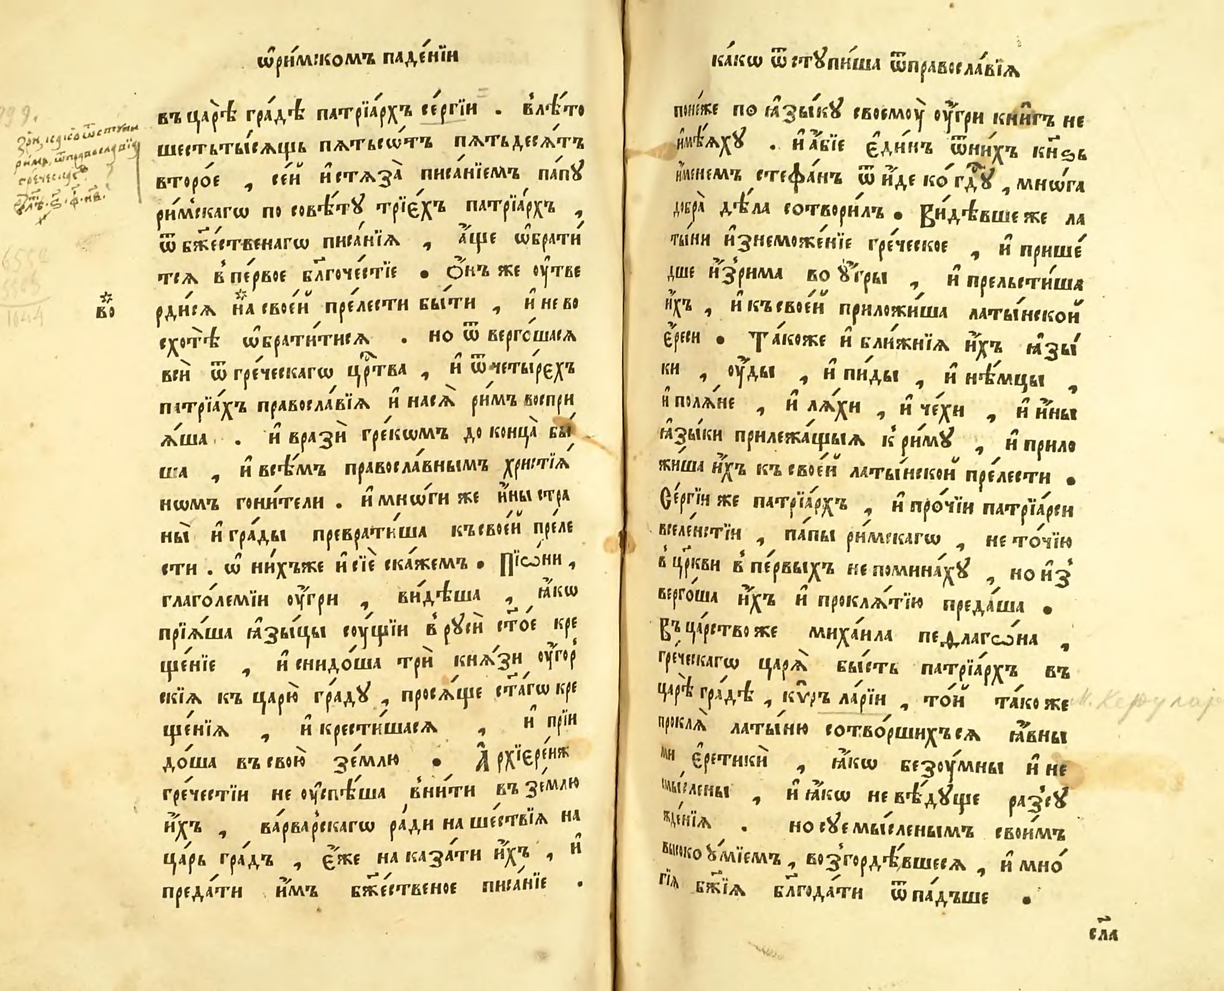 ѡ҆ри́мскомъ паде́нїи
въ царѣ̀ гра́дѣ патрїа́рхъ се́ргїи . влѣ́то
шестьты́сящь пѧтьсѡ́тъ пѧтьдесѧ́тъ
второ́е , се́й и҆стѧза̀ писа́нїемъ па́пꙋ
ри́мскагѡ по совѣ́тꙋ трїе́хъ патрїа́рхъ ,
ѿ бж҃е́ственагѡ писа́нїѧ , а҆́ще ѡ҆брати́
тсѧ в пе́рвое бл҃гоче́стїе . Ѻ҆́нъ же ᲂу҆тве
рди́сѧ на своей пре́лести бы́ти , и҆ не во
схотѣ̀ ѡ҆брати́тисѧ . но ѿ верго́шасѧ
всѝ ѿ гре́ческагѡ црⷭ҇тва , и҆ ѿ четы́рєхъ
патрїа́хъ правосла́вїѧ и҆ насѧ̀ ри́мъ воспри
ѧ́ша . и҆ вразѝ гре́кѡмъ до конца̀ бы́
ша , и҆ всѣ́мъ правосла́внымъ христїѧ́
нѡмъ гони́тели . и҆ мнѡ́ги же и҆́ны стра
ны̀ и҆ гра́ды преврати́ша къ свое́й пре́ле
сти . ѡ҆ ни́хъже и҆ сїѐ ска́жемъ . Пїѡ́ни ,
глаго́лемїи ᲂу҆́гри , ви́дѣша , ꙗ҆́кѡ
прїѧ́ша ꙗ҆зы́цы сꙋ́щїи в рꙋсѝ ст҃о́е кре
ще́нїе , и҆ снидо́ша трѝ кнѧ́зи ᲂу҆го́р
скїѧ къ царю̀ гра́дꙋ , просѧ́ще ст҃а́гѡ кре
ще́нїѧ , и҆ крести́шасѧ , и҆ прїи
до́ша въ свою̀ зе́млю . А҆рхїере́иж
гре́честїи не ᲂу҆спѣ́ша вни́ти въ зе́млю
и҆́хъ , ва́рварскагѡ ра́ди наше́ствїѧ на
ца́рь гра́дъ , є҆́же наказа́ти и҆́хъ , и҆
преда́ти и҆̀мъ бж҃е́ственое писа́нїе .
во
ка́кѡ ѿстꙋпи́ша ѿправосла́вїѧ
поне́же по ꙗ҆зы́кꙋ своемꙋ̀ ᲂу҆́гри кни́гъ не
и҆мѣ́ѧхꙋ . и҆ а҆́бїе є҆ди́нъ ѿни́хъ кн҃ѕь
и҆́менемъ стефа́нъ ѿ и҆́де ко гдⷭ҇ꙋ , мнѡ́га
добра̀ дѣ́ла сотвори́лъ . Ви́дѣвше же ла
ты́ни и҆знеможе́нїе гре́ческое , и҆ прише́
дше и҆́зрима во ᲂу҆́гры , и҆ прельсти́ша
и҆́хъ , и҆ къ свое́й приложи́ша латы́нской
є҆́реси . Та́коже и҆ бли́жнїѧ и҆́хъ ꙗ҆зы́
ки , ᲂу҆́ды , и҆ пи́ды , и҆ нѣ́мцы ,
и҆ полѧ́не , и҆ лѧ́хи , и҆ че́хи , и҆ и҆́ны
ꙗ҆зы́ки прилежа́щыѧ к ри́мꙋ , и҆ прило
жи́ша и҆́хъ къ свое́й латы́нской пре́лести .
Се́ргїи же патрїа́рхъ , и҆ про́чїи патрїа́рси
вселе́нстїи , па́пы ри́мскагѡ , не то́чїю
в цр҃кви в пе́рвыхъ не помина́хꙋ , но и҆з
верго́ша и҆́хъ и҆ проклѧ́тїю преда́ша .
Въ царство же михаи́ла пефлагѡ́на ,
гре́ческагѡ царѧ̀ бы́сть патрїа́рхъ въ
царѣ̀ гра́дѣ , кѷръ ла́рїи , то́й та́ко же
проклѧ̀ латы́ню сотво́ршихъсѧ ꙗ҆́вны
ми є҆ретикѝ , ꙗ҆́кѡ безꙋ́мны и҆ не
смы́слены , и҆ ꙗ҆́кѡ не вѣ́дꙋще разсꙋ
жде́нїѧ . но сꙋемы́сленымъ свои́мъ
высокоꙋ́мїемъ , возгордѣ́вшеесѧ , и҆ мно́
гїѧ бж҃їѧ бл҃года́ти ѿпа́дъше .
сл҃а